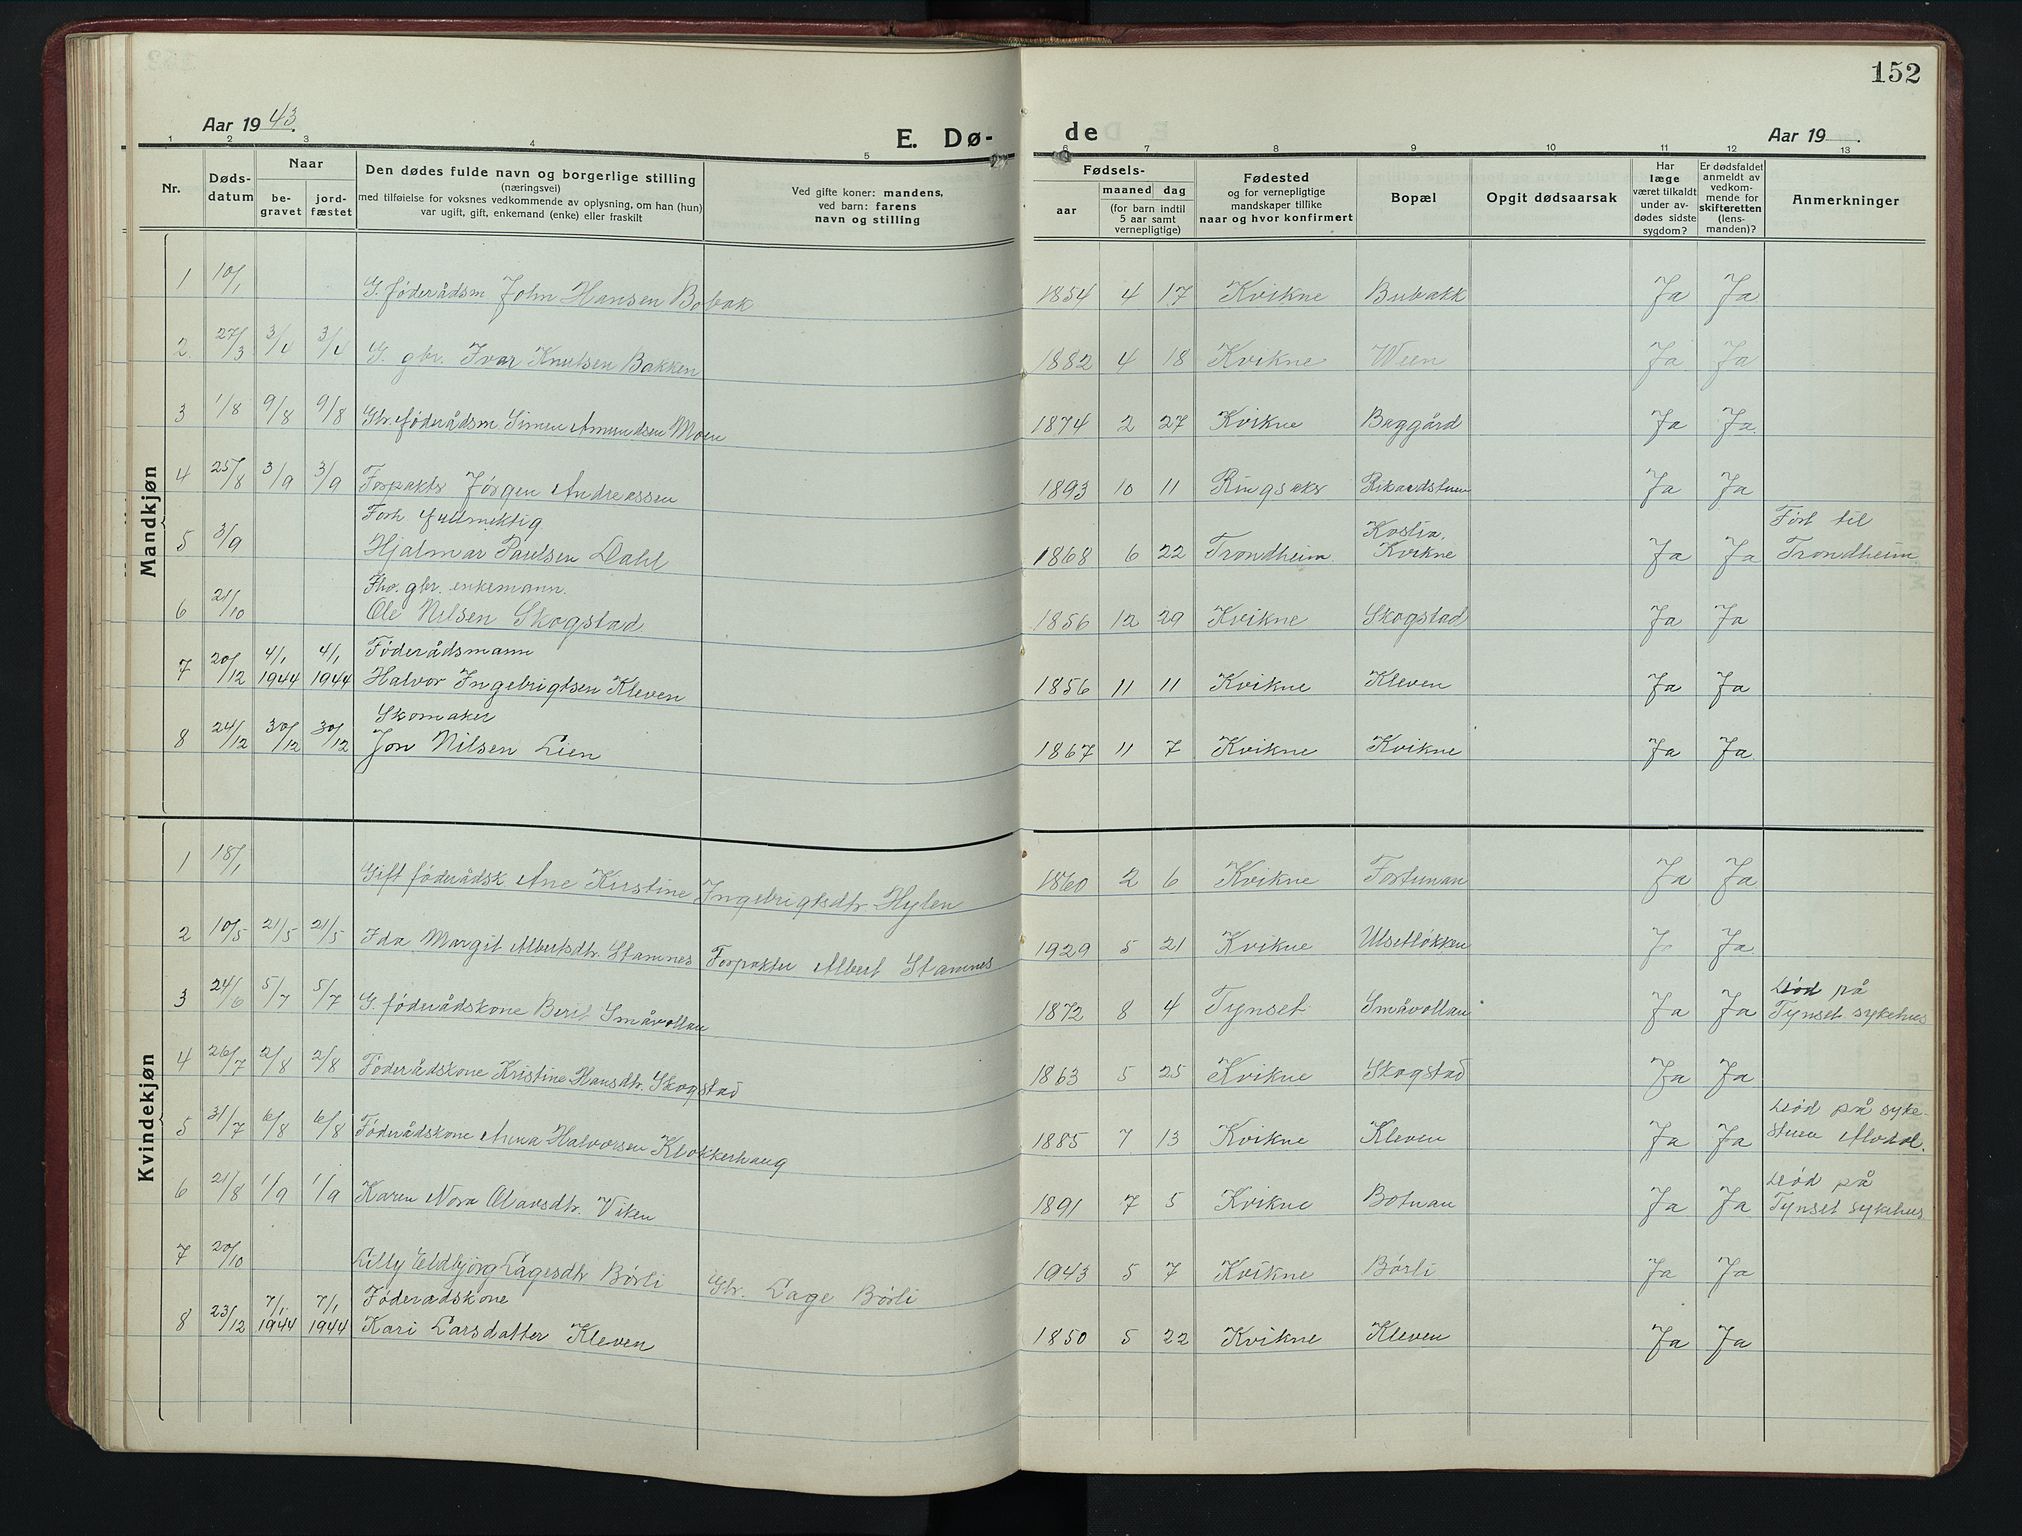 152
Aar 1943.
E. Dø-
de
Aar 19
1 2 3 4 5 6 7 8 9 10 11 12 13
Nr.
Døds-
datum
Naar
be-
gravet
jord-
fæstet
Den dødes fulde navn og borgerlige stilling
(næringsvei)
med tilføielse for voksnes vedkommende av oplysning, om han (hun)
var ugift, gift, enkemand (enke) eller fraskilt
Ved gifte koner: mandens,
ved barn: farens
navn og stilling
Fødsels-
aar
maaned dag
(for barn indtil
5 aar samt
vernepligtige)
Fødested
og for vernepligtige
mandskaper tillike
naar og hvor konfirmert
Bopæl
Opgit dødsaarsak
Har
læge
været tilkaldt
under av-
dødes sidste
sygdom?
Er dødsfaldet
anmeldt av
vedkom-
mende for
skifteretten
(lens-
manden)?
Anmerkninger
Mandkjøn
1 10/1 G. føderådsm John Hansen Bobak 1854 4 17 Kvikne Bubakk Ja Ja
2. 27/3 3/4 3/4 G. gbr. Ivar Knutsen Bakken 1882 4 18 Kvikne Ween Ja Ja
3 1/8 9/8 9/8 Gbr. føderådsm Simen Amundsen Moen 1874 2 27 Kvikne Baggård Ja Ja.
4 25/8 3/9 3/9 Forpakter Jørgen Andreassen 1893 10 11 Ringsaker Rikardstuen Ja Ja
Forh. fullmektig
5 3/9 Hjalmar Paulsen Dahl 1868 6 22 Trondheim. Kostia, Kvikne Ja Ja Ført til Trondheim
Fhv. gbr. enkemann.
6 21/10 Ole Nilsen Skogstad 1856 12 29 Kvikne Skogstad Ja Ja
Føderådsmann
7 20/12 4/1 1944 4/1 1944 Halvor Ingebrigtsen Kleven 1856 11 11 Kvikne Kleven Ja Ja
Skomaker
8 24/12 30/12 30/12 Jon Nilsen Lien 1867 11 7 Kvikne Kvikne Ja Ja
Kvindekjøn
1 18/1 Gift føderådsk Ane Kirstine Ingebrigtsdtr. Hylen 1860 2 6 Kvikne Fortunan Ja Ja
2 10/5 21/5 21/5 Ida Margit Albertsdtr. Stamnes Forpakter Albert Stamnes 1929 5 21 Kvikne Ulsetløkken Ja Ja.
3 24/6 5/7 5/7 G. føderådskone Berit Småvollan 1872 8 4 Tynset Småvollan Ja Ja Død på Tynset sykehus
4 26/7 2/8 2/8 Føderådskone Kristine Hansdtr. Skogstad 1863 5 25 Kvikne Skogstad Ja Ja
5 31/7 6/8 6/8 Føderådskone Anna Halvorsen Klokkerhaug 1885 7 13 Kvikne Kleven Ja Ja Død på syke-stuen Alvdal.
6 21/8 1/9 1/9 Karen Nora Olavsdtr. Viken 1891 7 5 Kvikne Botnan Ja Ja Død på Tynset sykehus.
7 20/10 Lilly Eldbjørg Lagesdtr Børli Gbr. Lage Børli 1943 5 7 Kvikne Børli Ja Ja
Føderadskone
8 23/12 7/1 1944 7/1 1944 Kari Larsdatter Kleven 1850 5 22 Kvikne Kleven Ja Ja